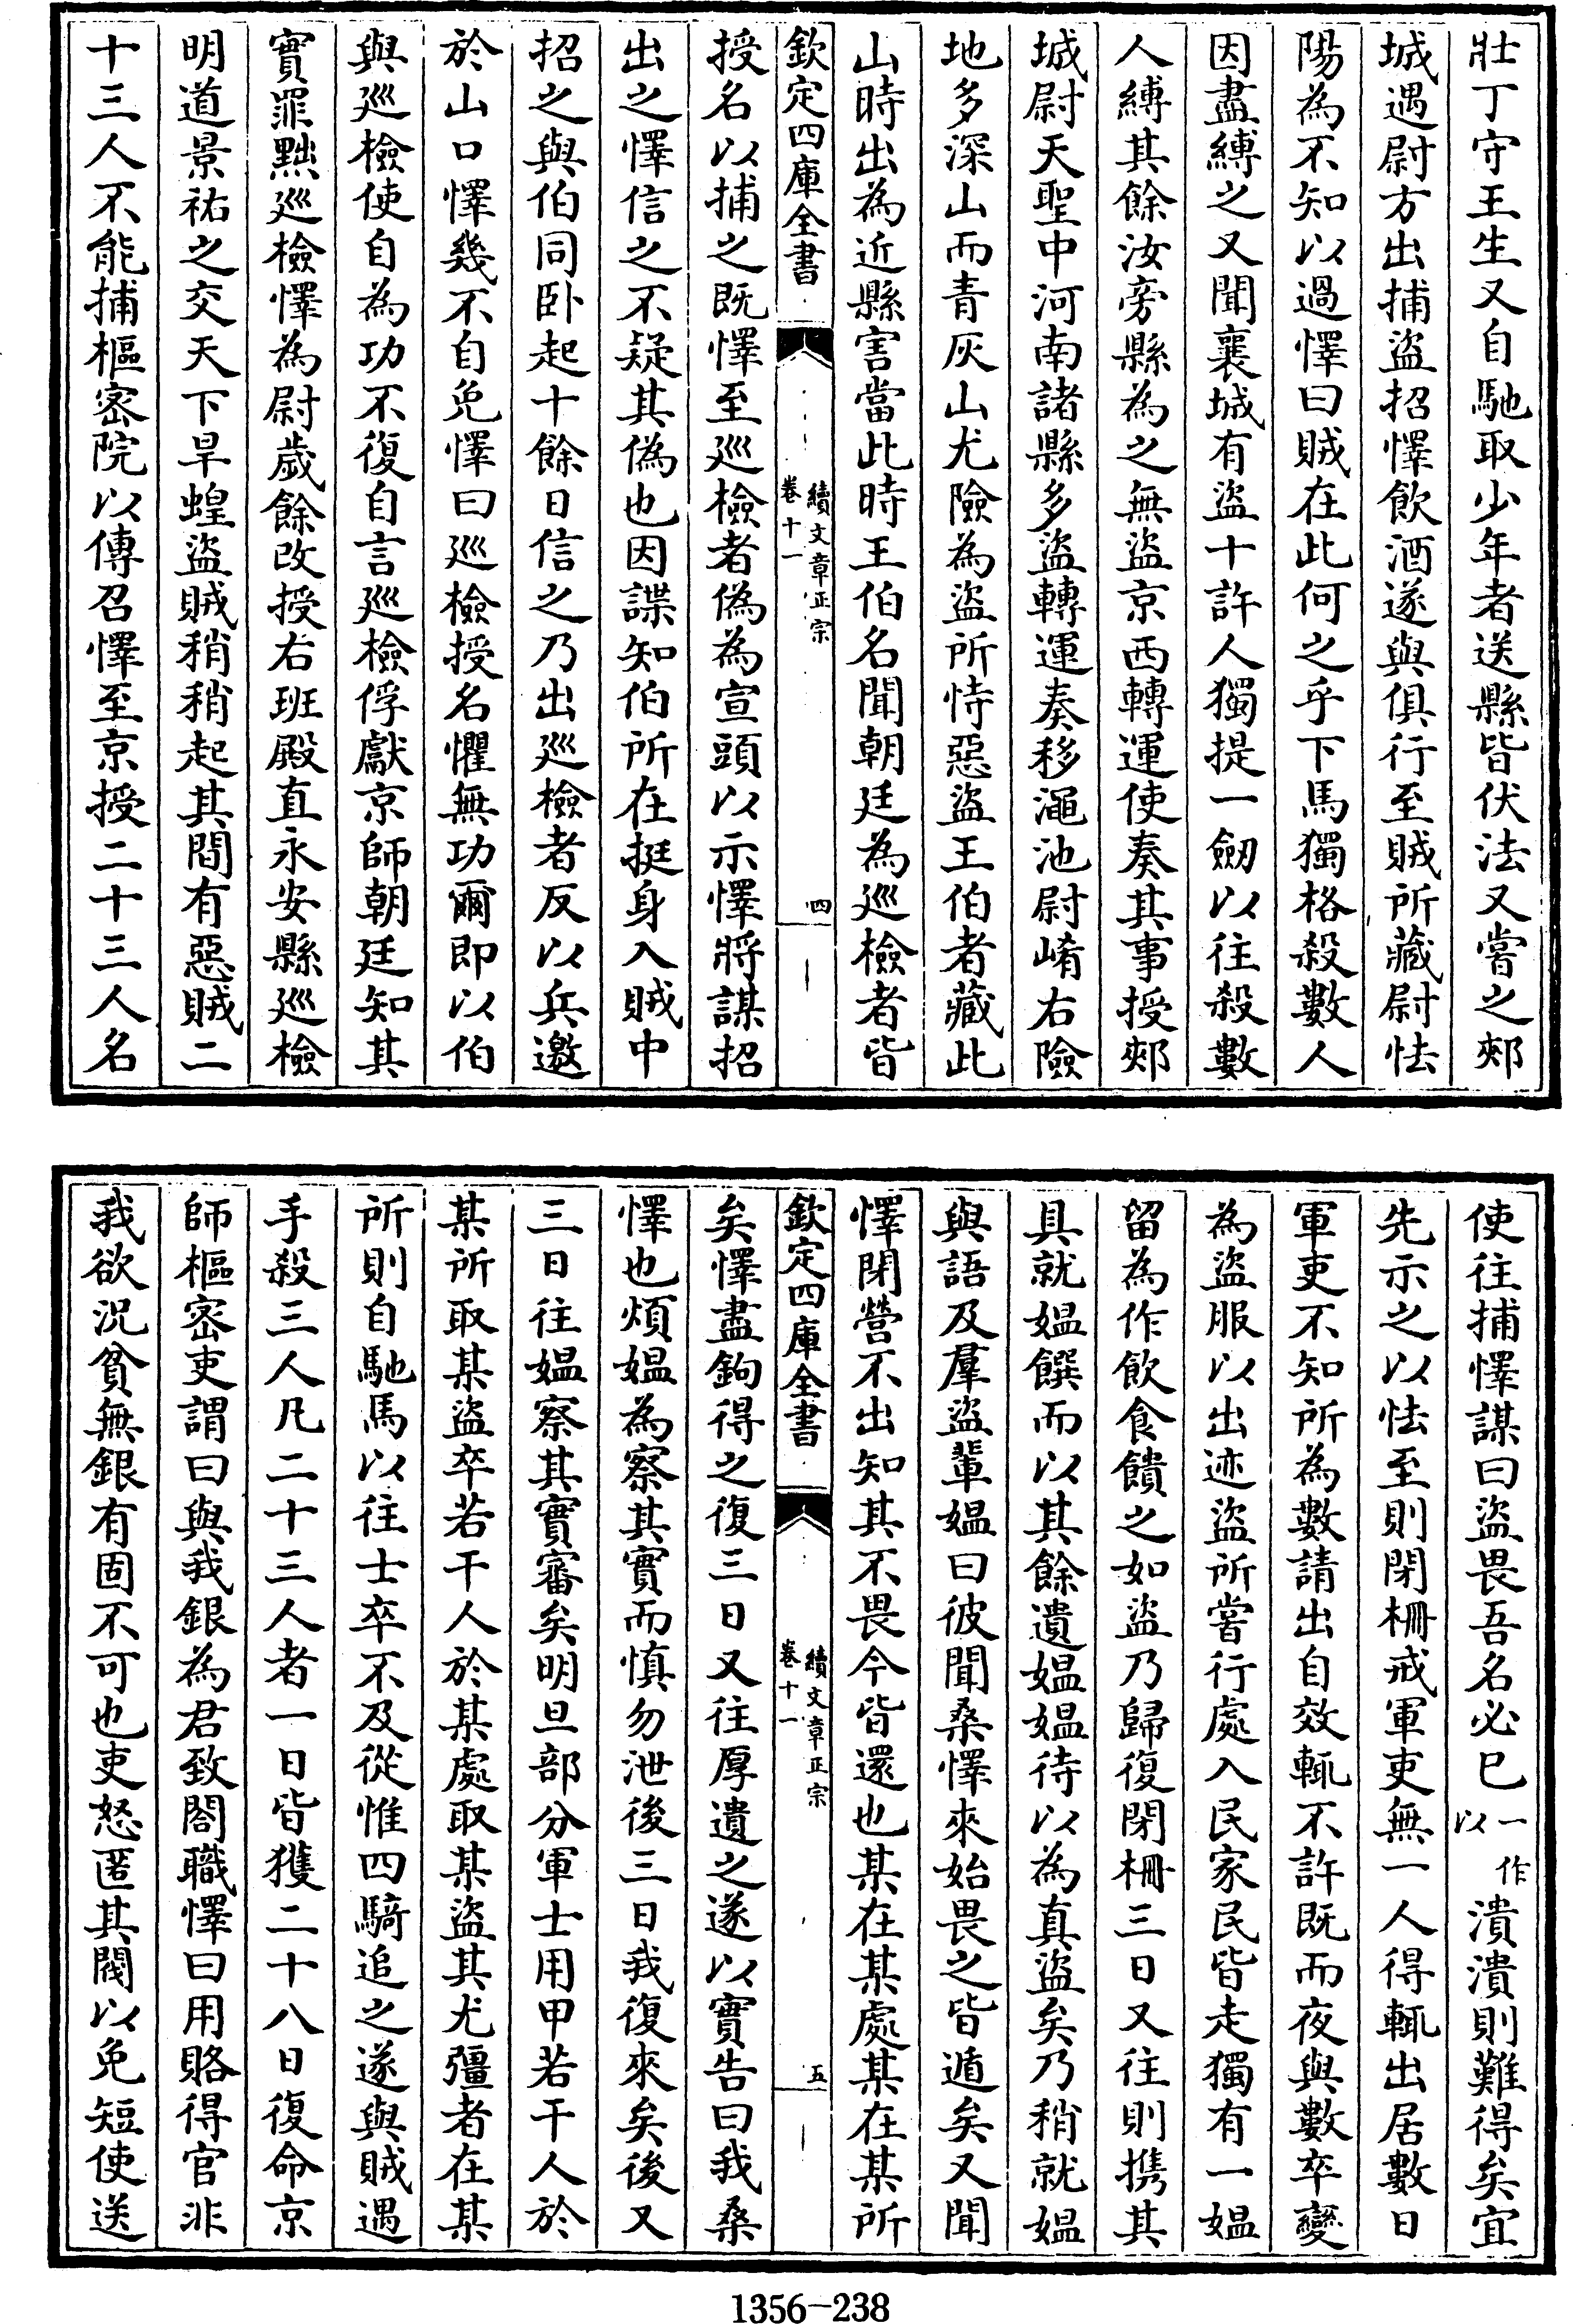 壯丁守王生又自馳取少年者送縣皆伏法又嘗之郟
城遇尉方出捕盜招懌飲酒遂與俱行至賊所藏尉怯
陽為不知以過懌曰賊在此何之乎下馬獨格殺數人
因盡縛之又聞襄城有盜十許人獨提一劒以往殺數
人縛其餘汝旁縣為之無盜京西轉運使奏其事授郟
城尉天聖中河南諸縣多盜轉運奏移澠池尉崤右險
地多深山而青灰山尤險為盜所恃惡盜王伯者藏此
山時出為近縣害當此時王伯名聞朝廷為巡檢者皆
欽定四庫全書
續文章正宗
卷十一
四
授名以捕之既懌至巡檢者偽為宣頭以示懌將謀招
出之懌信之不疑其偽也因諜知伯所在挺身入賊中
招之與伯同卧起十餘日信之乃出巡檢者反以兵邀
於山口懌幾不自免懌曰巡檢授名懼無功爾即以伯
與巡檢使自為功不復自言巡檢俘獻京師朝廷知其
實罪黜巡檢懌為尉歲餘改授右班殿直永安縣巡檢
明道景祐之交天下旱蝗盜賊稍稍起其間有惡賊二
十三人不能捕樞宻院以傳召懌至京授二十三人名
使往捕懌謀曰盜畏吾名必已一作以潰潰則難得矣宜
先示之以怯至則閉柵戒軍吏無一人得輒出居數日
軍吏不知所為數請出自效輒不許既而夜與數卒變
為盜服以出迹盜所嘗行處入民家民皆走獨有一媪
留為作飲食饋之如盜乃歸復閉柵三日又往則携其
具就媪饌而以其餘遺媪媪待以為真盜矣乃稍就媪
與語及羣盜輩媪曰彼聞桑懌來始畏之皆遁矣又聞
懌閉營不出知其不畏今皆還也某在某處某在某所
欽定四庫全書
續文章正宗
卷十一
五
矣懌盡鉤得之復三日又往厚遺之遂以實告曰我桑
懌也煩媪為察其實而慎勿泄後三日我復來矣後又
三日往媪察其實審矣明旦部分軍士用甲若干人於
某所取某盜卒若干人於某處取某盜其尤彊者在某
所則自馳馬以往士卒不及從惟四騎追之遂與賊遇
手殺三人凡二十三人者一日皆獲二十八日復命京
師樞宻吏謂曰與我銀為君致閤職懌曰用賂得官非
我欲況貧無銀有固不可也吏怒匿其閥以免短使送
1356-238